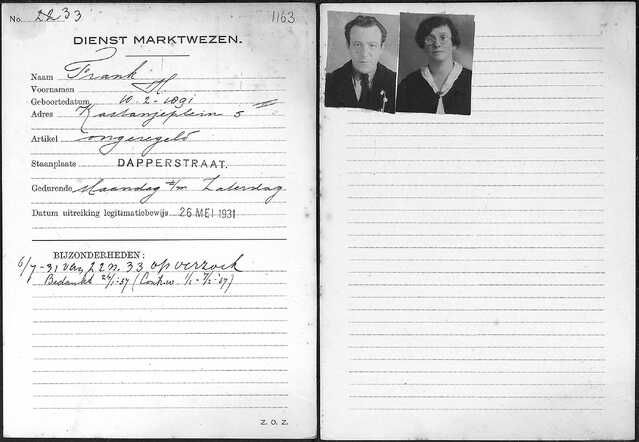 No. 22 33 1163
DIENST MARKTWEZEN.
Naam Frank
Voornamen H
Geboortedatum 10-2-1891
Adres Kastanjeplein 5 III
Artikel ongeregeld
Staanplaats DAPPERSTRAAT.
Gedurende Maandag t/m Zaterdag
Datum uitreiking legitimatiebewijs 26 MEI 1931
BIJZONDERHEDEN:
6/7-31 van 22 n. 33 op verzoek
Bedankt 26/1-37 (Contr.
Z. O. Z.